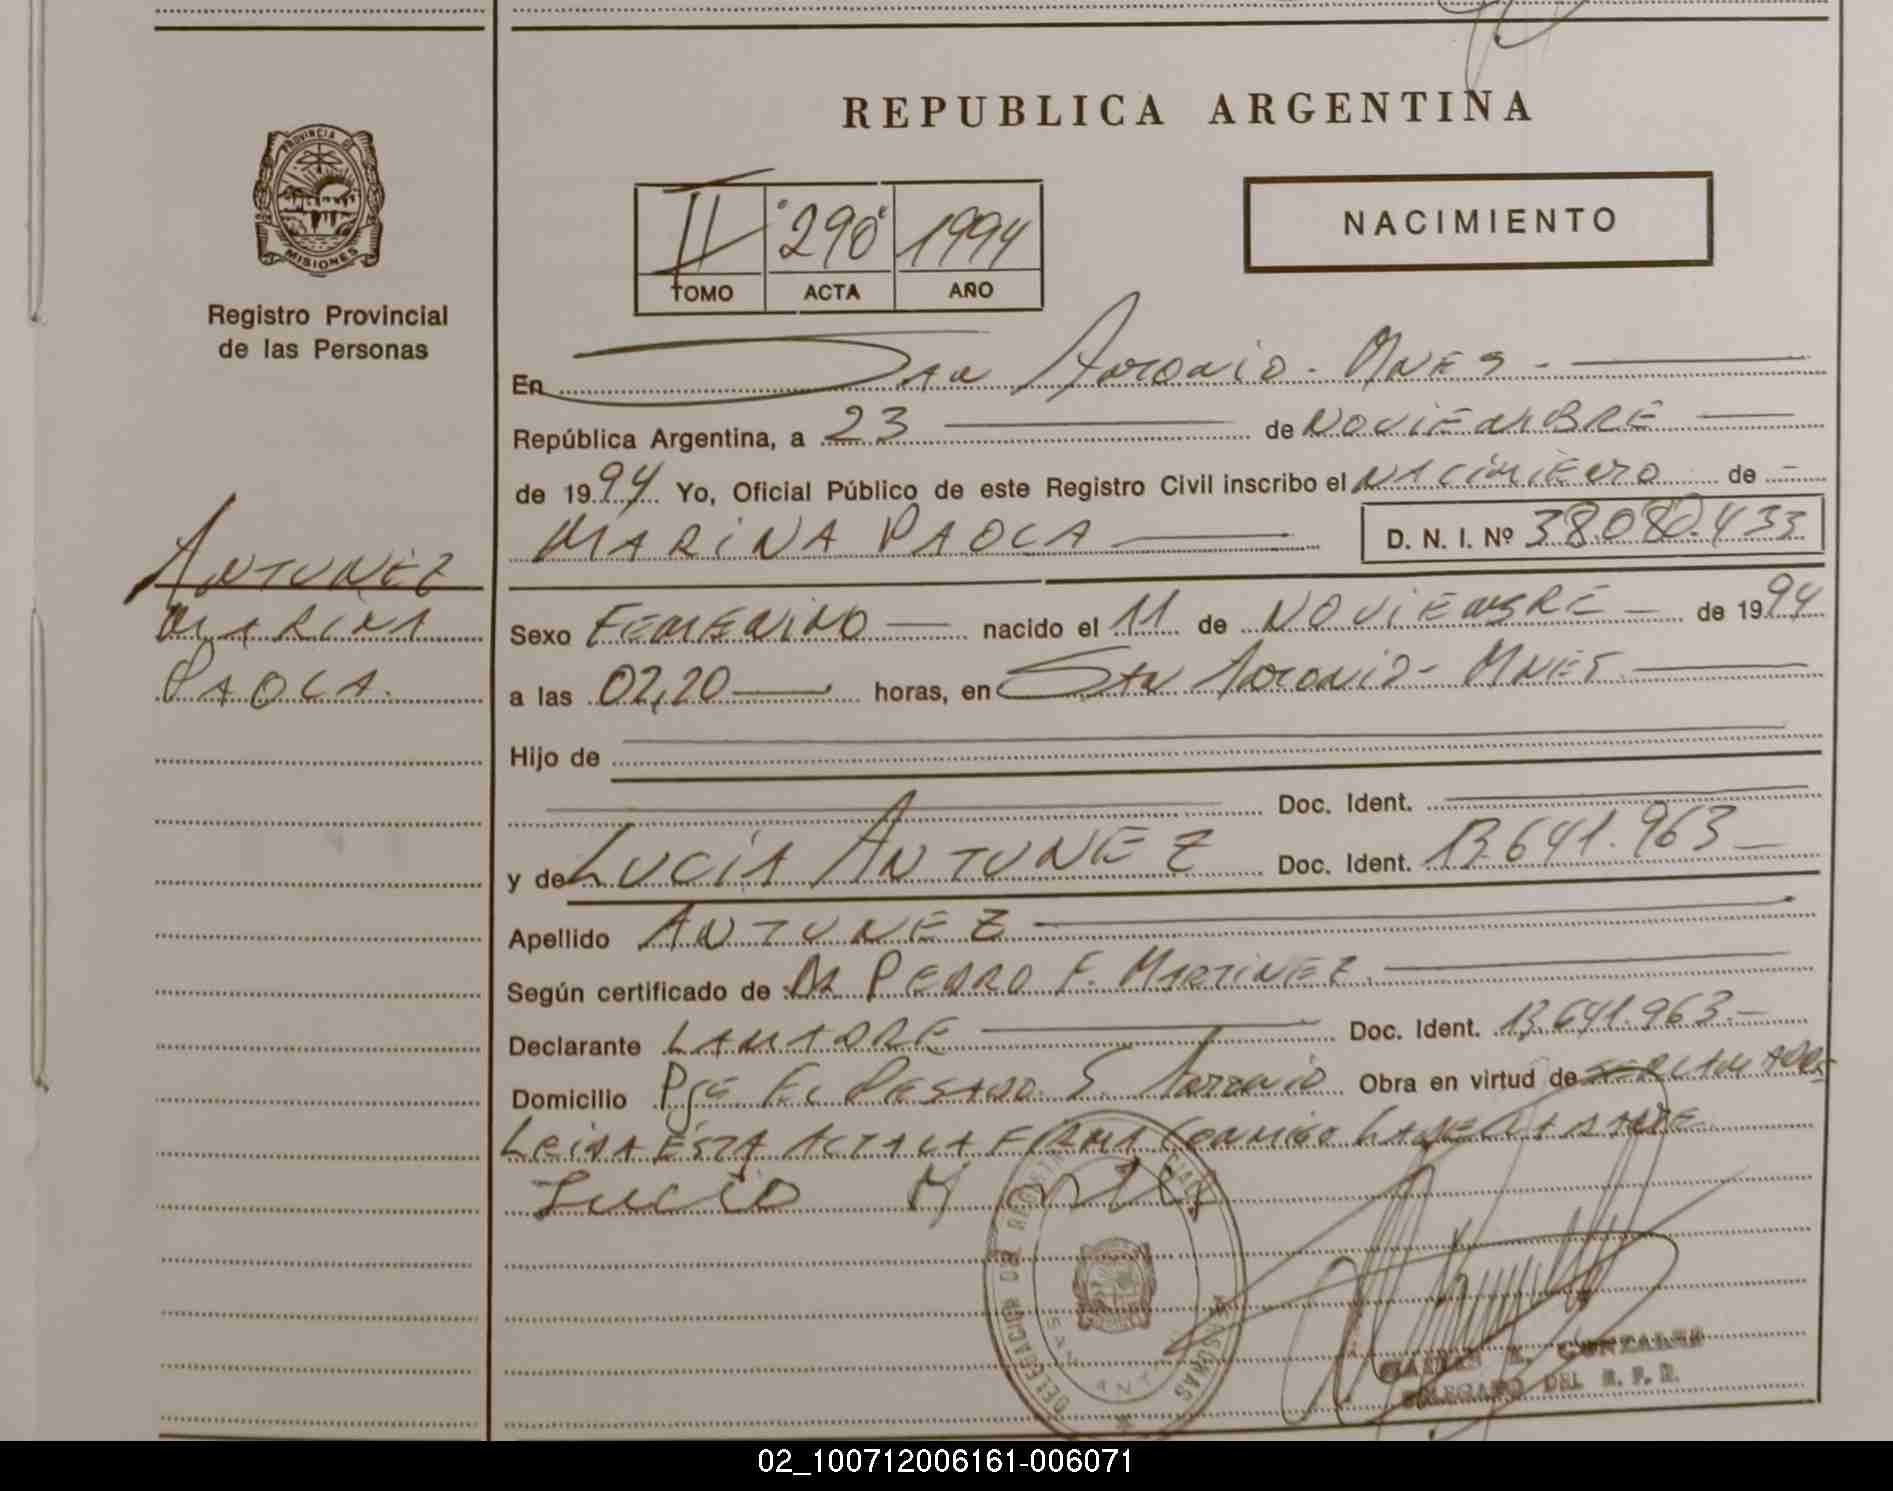 REPUBLICA ARGENTINA
PROVINCIA DE
MISIONES
Registro Provincial
de las Personas
II 290 1994
TOMO ACTA AÑO
NACIMIENTO
En San Antonio - Mnes -
República Argentina, a 23 de NOVIEMBRE
de 1994 Yo, Oficial Público de este Registro Civil inscribo el NACIMIENTO de
MARINA PAOLA D. N. I. Nº 38.080.433
ANTUNEZ
MARINA
PAOLA.
Sexo FEMENINO nacido el 11 de NOVIEMBRE de 1994
a las 02,20 horas, en San Antonio - Mnes.
Hijo de
Doc. Ident.
y de LUCIA ANTUNEZ Doc. Ident. 13.641.963
Apellido ANTUNEZ
Según certificado de DR PEDRO F. MARTINEZ.
Declarante LA MADRE Doc. Ident. 13.641.963.-
Domicilio Pje EL PESADO. S. Antonio Obra en virtud de
LEIDA ESTA ACTA LA FIRMA CONMIGO LA MADRE
DELEGACION DEL REGISTRO PERSONAS
SAN ANT
GONZALEZ
DELEGADO DEL R. P. P.
02_100712006161-006071